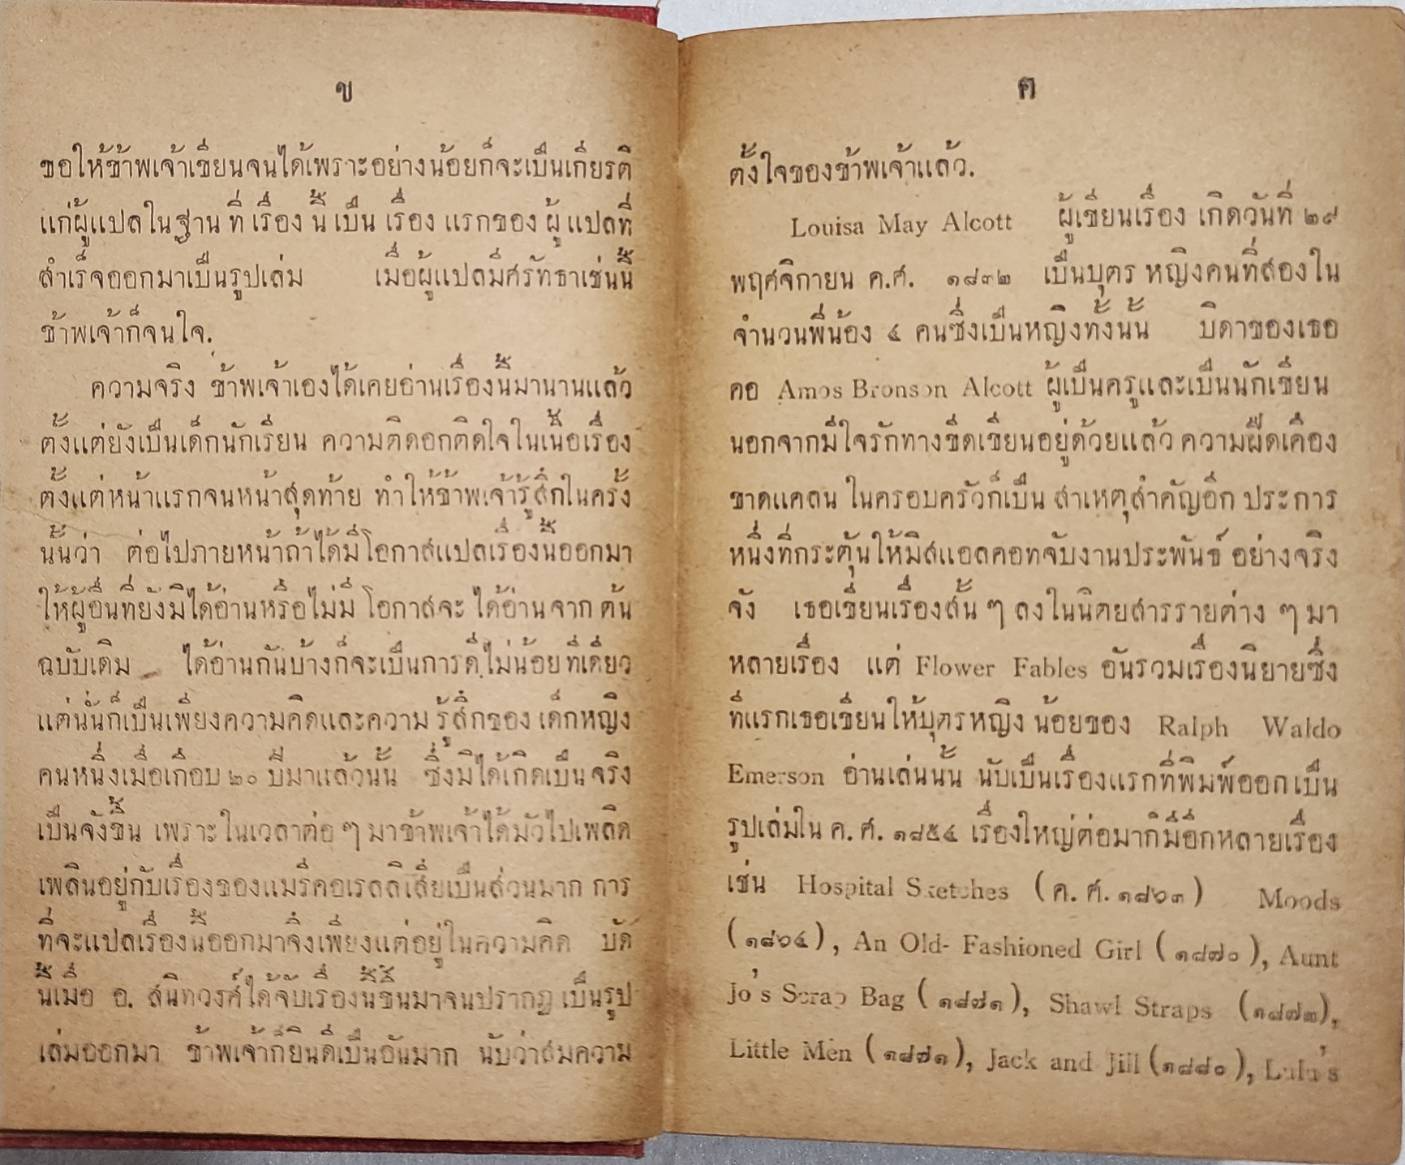 ข
ขอให้ข้าพเจ้าเขียนจนได้เพราะอย่างน้อยก็จะเป็นเกียรติ
แก่ผู้แปลในฐานที่เรื่องนี้เป็นเรื่องแรกของผู้แปลที่
สำเร็จออกมาเป็นรูปเล่ม เมื่อผู้แปลมีศรัทธาเช่นนี้
ข้าพเจ้าก็จนใจ.
ความจริง ข้าพเจ้าเองได้เคยอ่านเรื่องนี้มานานแล้ว
ตั้งแต่ยังเป็นเด็กนักเรียน ความติดอกติดใจในเนื้อเรื่อง
ตั้งแต่หน้าแรกจนหน้าสุดท้าย ทำให้ข้าพเจ้ารู้สึกในครั้ง
นั้นว่า ต่อไปภายหน้าถ้าได้มีโอกาสแปลเรื่องนี้ออกมา
ให้ผู้อื่นที่ยังมิได้อ่านหรือไม่มีโอกาสจะได้อ่านจากต้น
ฉบับเดิม ได้อ่านกันบ้างก็จะเป็นการดีไม่น้อยทีเดียว
แต่นั่นก็เป็นเพียงความคิดและความรู้สึกของเด็กหญิง
คนหนึ่งเมื่อเกือบ ๒๐ ปีมาแล้วนั้น ซึ่งมิได้เกิดเป็นจริง
เป็นจังขึ้น เพราะในเวลาต่อ ๆ มาข้าพเจ้าได้มัวไปเพลิด
เพลินอยู่กับเรื่องของแมรี่คอเรลลิเสียเป็นส่วนมาก การ
ที่จะแปลเรื่องนี้ออกมาจึงเพียงแต่อยู่ในความคิด บัด
นี้เมื่อ อ. สนิทวงศ์ได้จับเรื่องนี้ขึ้นมาจนปรากฏเป็นรูป
เล่มออกมา ข้าพเจ้าก็ยินดีเป็นอันมาก นับว่าสมความ
ฅ
ตั้งใจของข้าพเจ้าแล้ว.
Louisa May Alcott ผู้เขียนเรื่อง เกิดวันที่ ๒๙
พฤศจิกายน ค.ศ. ๑๘๓๒ เป็นบุตรหญิงคนที่สองใน
จำนวนพี่น้อง ๔ คนซึ่งเป็นหญิงทั้งนั้น บิดาของเธอ
คือ Amos Bronson Alcott ผู้เป็นครูและเป็นนักเขียน
นอกจากมีใจรักทางขีดเขียนอยู่ด้วยแล้ว ความฝืดเคือง
ขาดแคลนในครอบครัวก็เป็นสาเหตุสำคัญอีกประการ
หนึ่งที่กระตุ้นให้มิสแอลคอทจับงานประพันธ์อย่างจริง
จัง เธอเขียนเรื่องสั้น ๆ ลงในนิตยสารรายต่าง ๆ มา
หลายเรื่อง แต่ Flower Fables อันรวมเรื่องนิยายซึ่ง
ทีแรกเธอเขียนให้บุตรหญิงน้อยของ Ralph Waldo
Emerson อ่านเล่นนั้น นับเป็นเรื่องแรกที่พิมพ์ออกเป็น
รูปเล่มใน ค.ศ. ๑๘๕๔ เรื่องใหญ่ต่อมาก็มีอีกหลายเรื่อง
เช่น Hospital Sketches (ค.ศ. ๑๘๖๓) Moods
(๑๘๖๔), An Old-Fashioned Girl (๑๘๗๐), Aunt
Jo's Scrap Bag (๑๘๗๑), Shawl Straps (๑๘๗๒),
Little Men (๑๘๗๑), Jack and Jill (๑๘๘๐), Lulu's